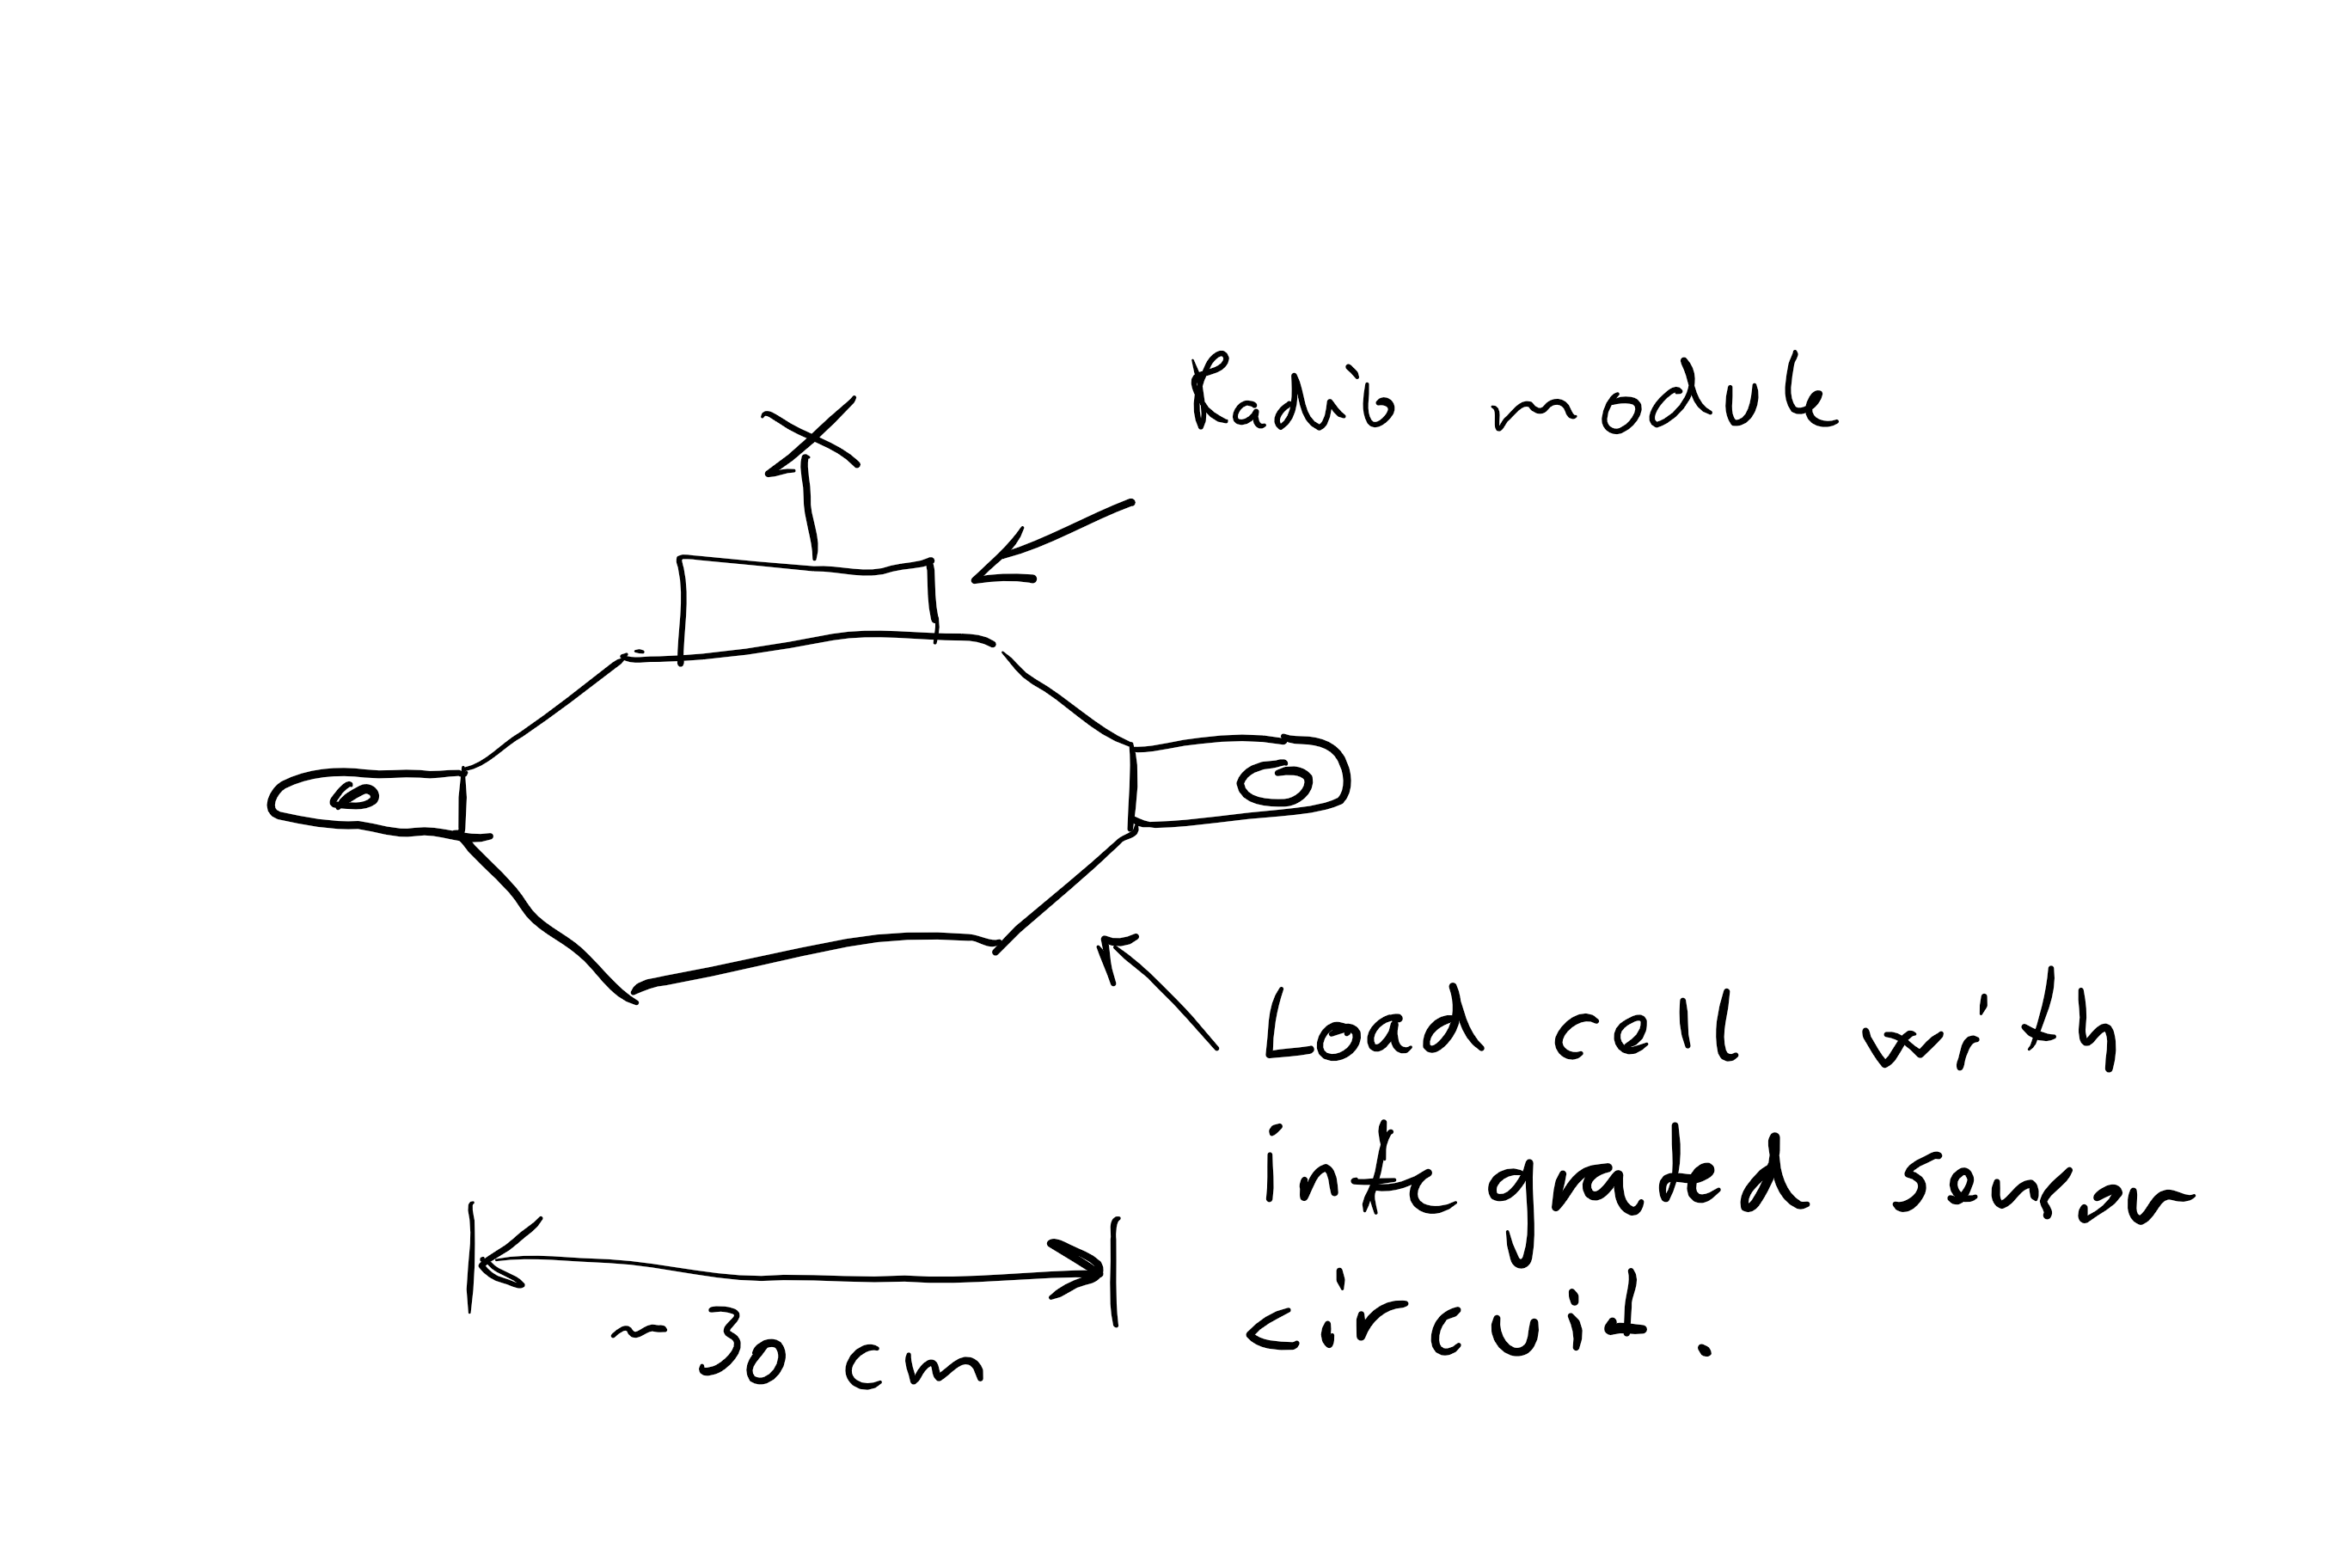 Radio module
Load cell with
integrated sensor
circuit.
~30 cm